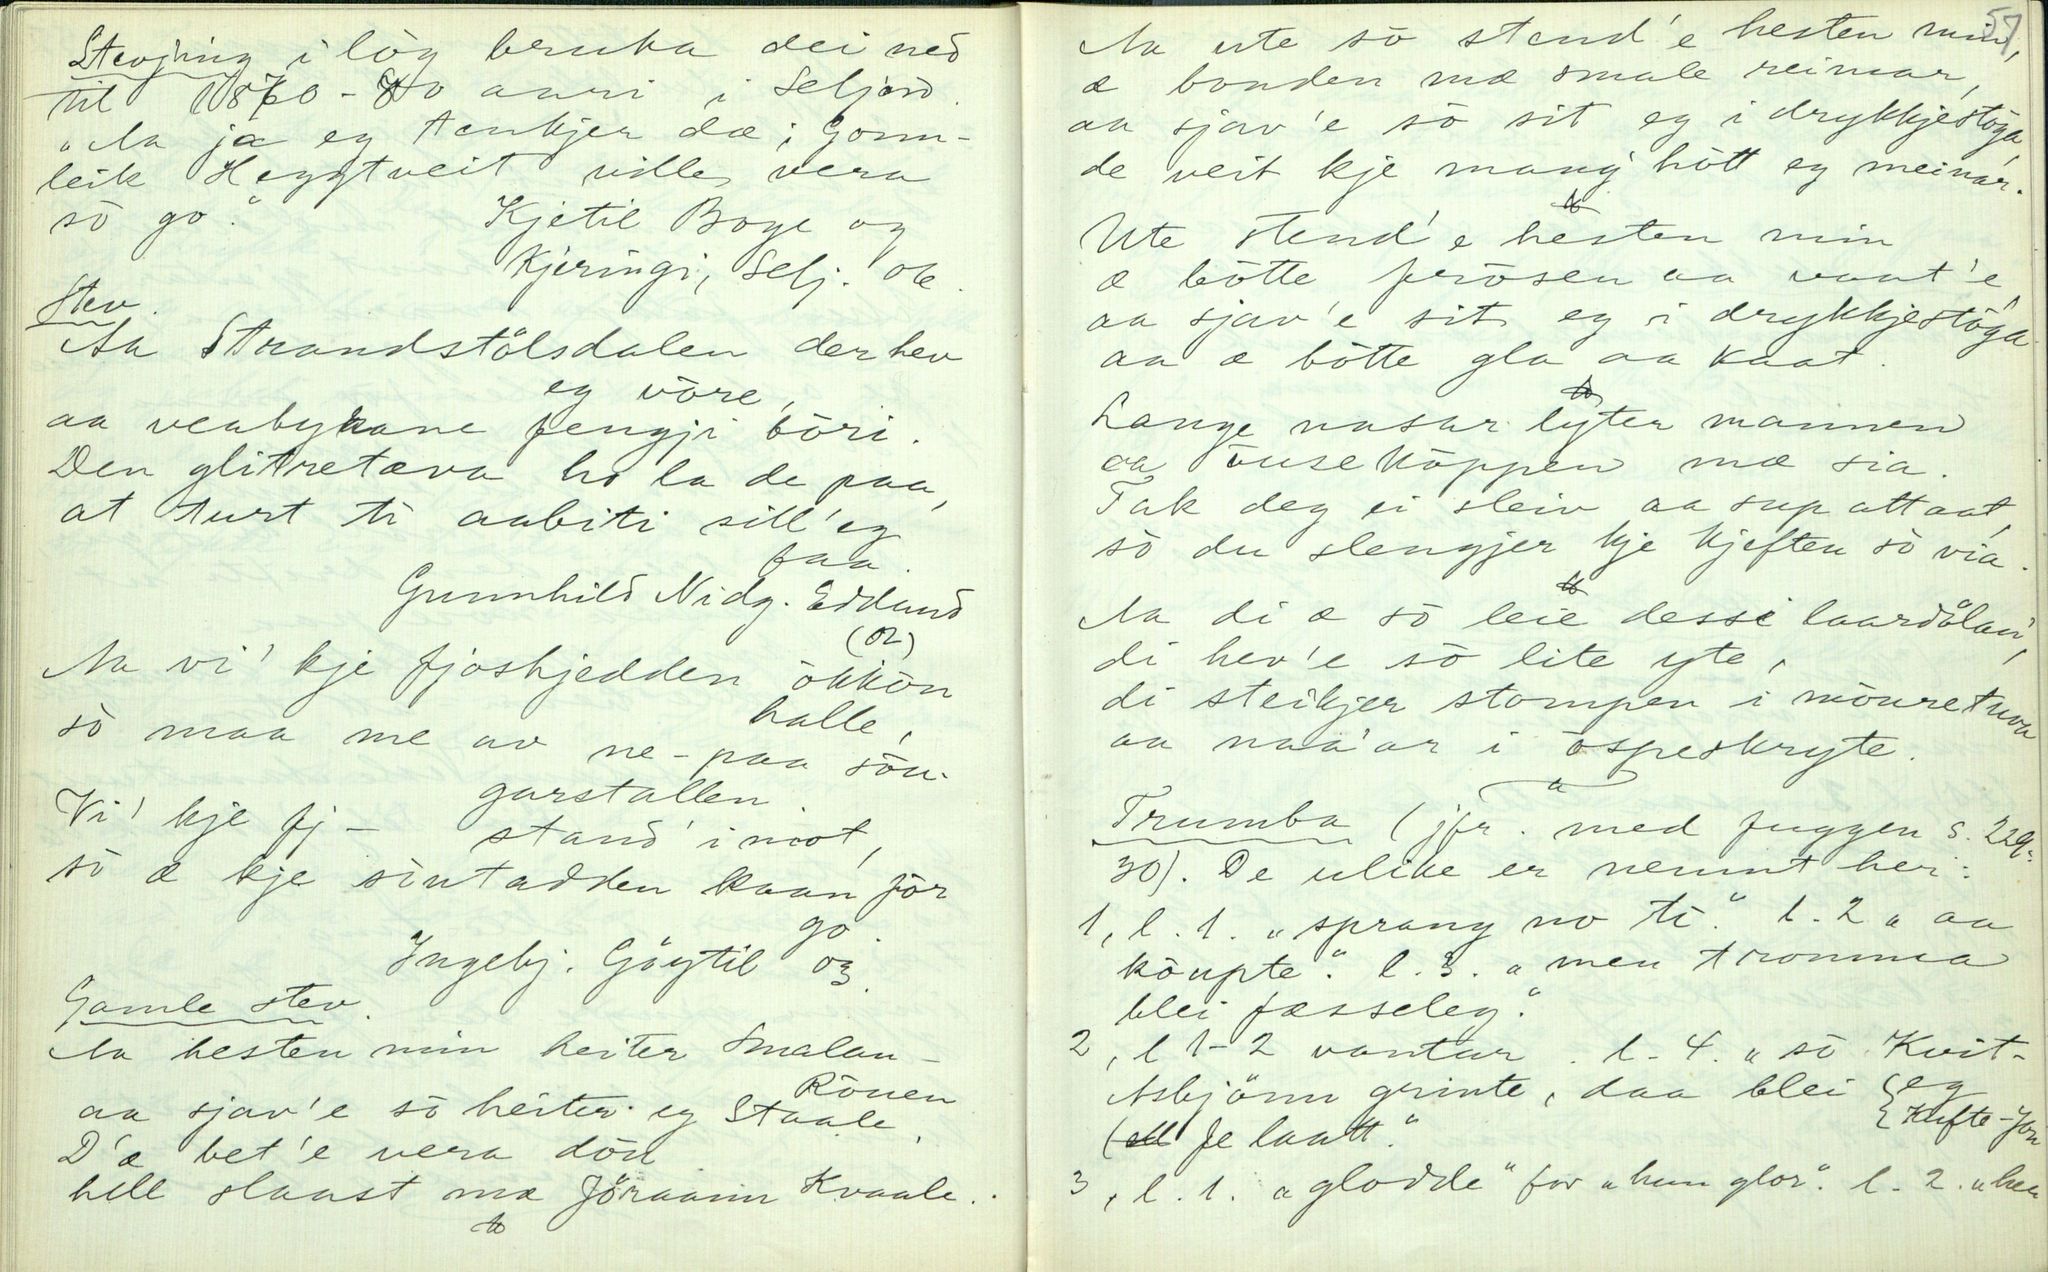 Stevjing i lög bruka dei ned
til 1870-80 auri i Seljord.
"Aa ja eg tenkjer dæ, Gonn-
leik Heggtveit ville vera
sò go."
Kjetil Boge og
Kjeringi, Selj. ok.
Stev.
Aa Strandstölsdalen der hev
eg vòre,
aa venbykane fengji bòri.
Den glitretæva ho la de paa,
at turt ti aabiti sill' eg
faa.
Gunnhild Nidg. Eddund
(or)
Aa vi' kje fjoskjedden òkkòn
halle,
sò maa me av ne-paa sòu-
garstallen.
Vi' kje fj- stand' imot,
sò æ kje sòutadden kaan fòr
go.
Ingebj. Göytil og.
Gamle stev.
Aa hesten min heiter Smalan-
Ròuen
aa sjav'e sò heiter eg Staale.
D'æ bet'e vera dòu
hell slaast mæ Jöraann Kvaale.
57
Aa ute sò stend'e hesten min,
æ bonden mæ smale reimar,
aa sjav'e sò sit eg i drykkjestòga,
de veit kje mang' hòtt eg meinar.
Ute stend'e hesten min
æ bòtte fròsen aa vaat'e,
aa sjav'e sit eg i drykkjestòga
aa æ bòtte gla aa kaat.
Lange nasar lyter mannen
aa òusekòppen mæ sia.
Tak deg ei sleiv aa sup attaat,
sò du slengjer kje kjeften sò via.
Aa di æ sò leie dessi laardölan',
di hev'e sò lite yte,
di steikjer stompen i mòuretuva
aa naa'ar i òspeskryte.
Trumba (jfr. med Fuggen s. 229-
30). De ulike er nemnt her:
1, l. 1. "sprang no ti." l. 2 "aa
kòupte." l. 3. "men tromma
blei fæsseleg."
2, l 1-2 vantar. l. 4. "sò Kvit-
Asbjönn grinte, daa blei { eg
{ Kufte-Jòn
fe laatt."
3, l. 1. "glodde" for "hun glor". l. 2. "hea